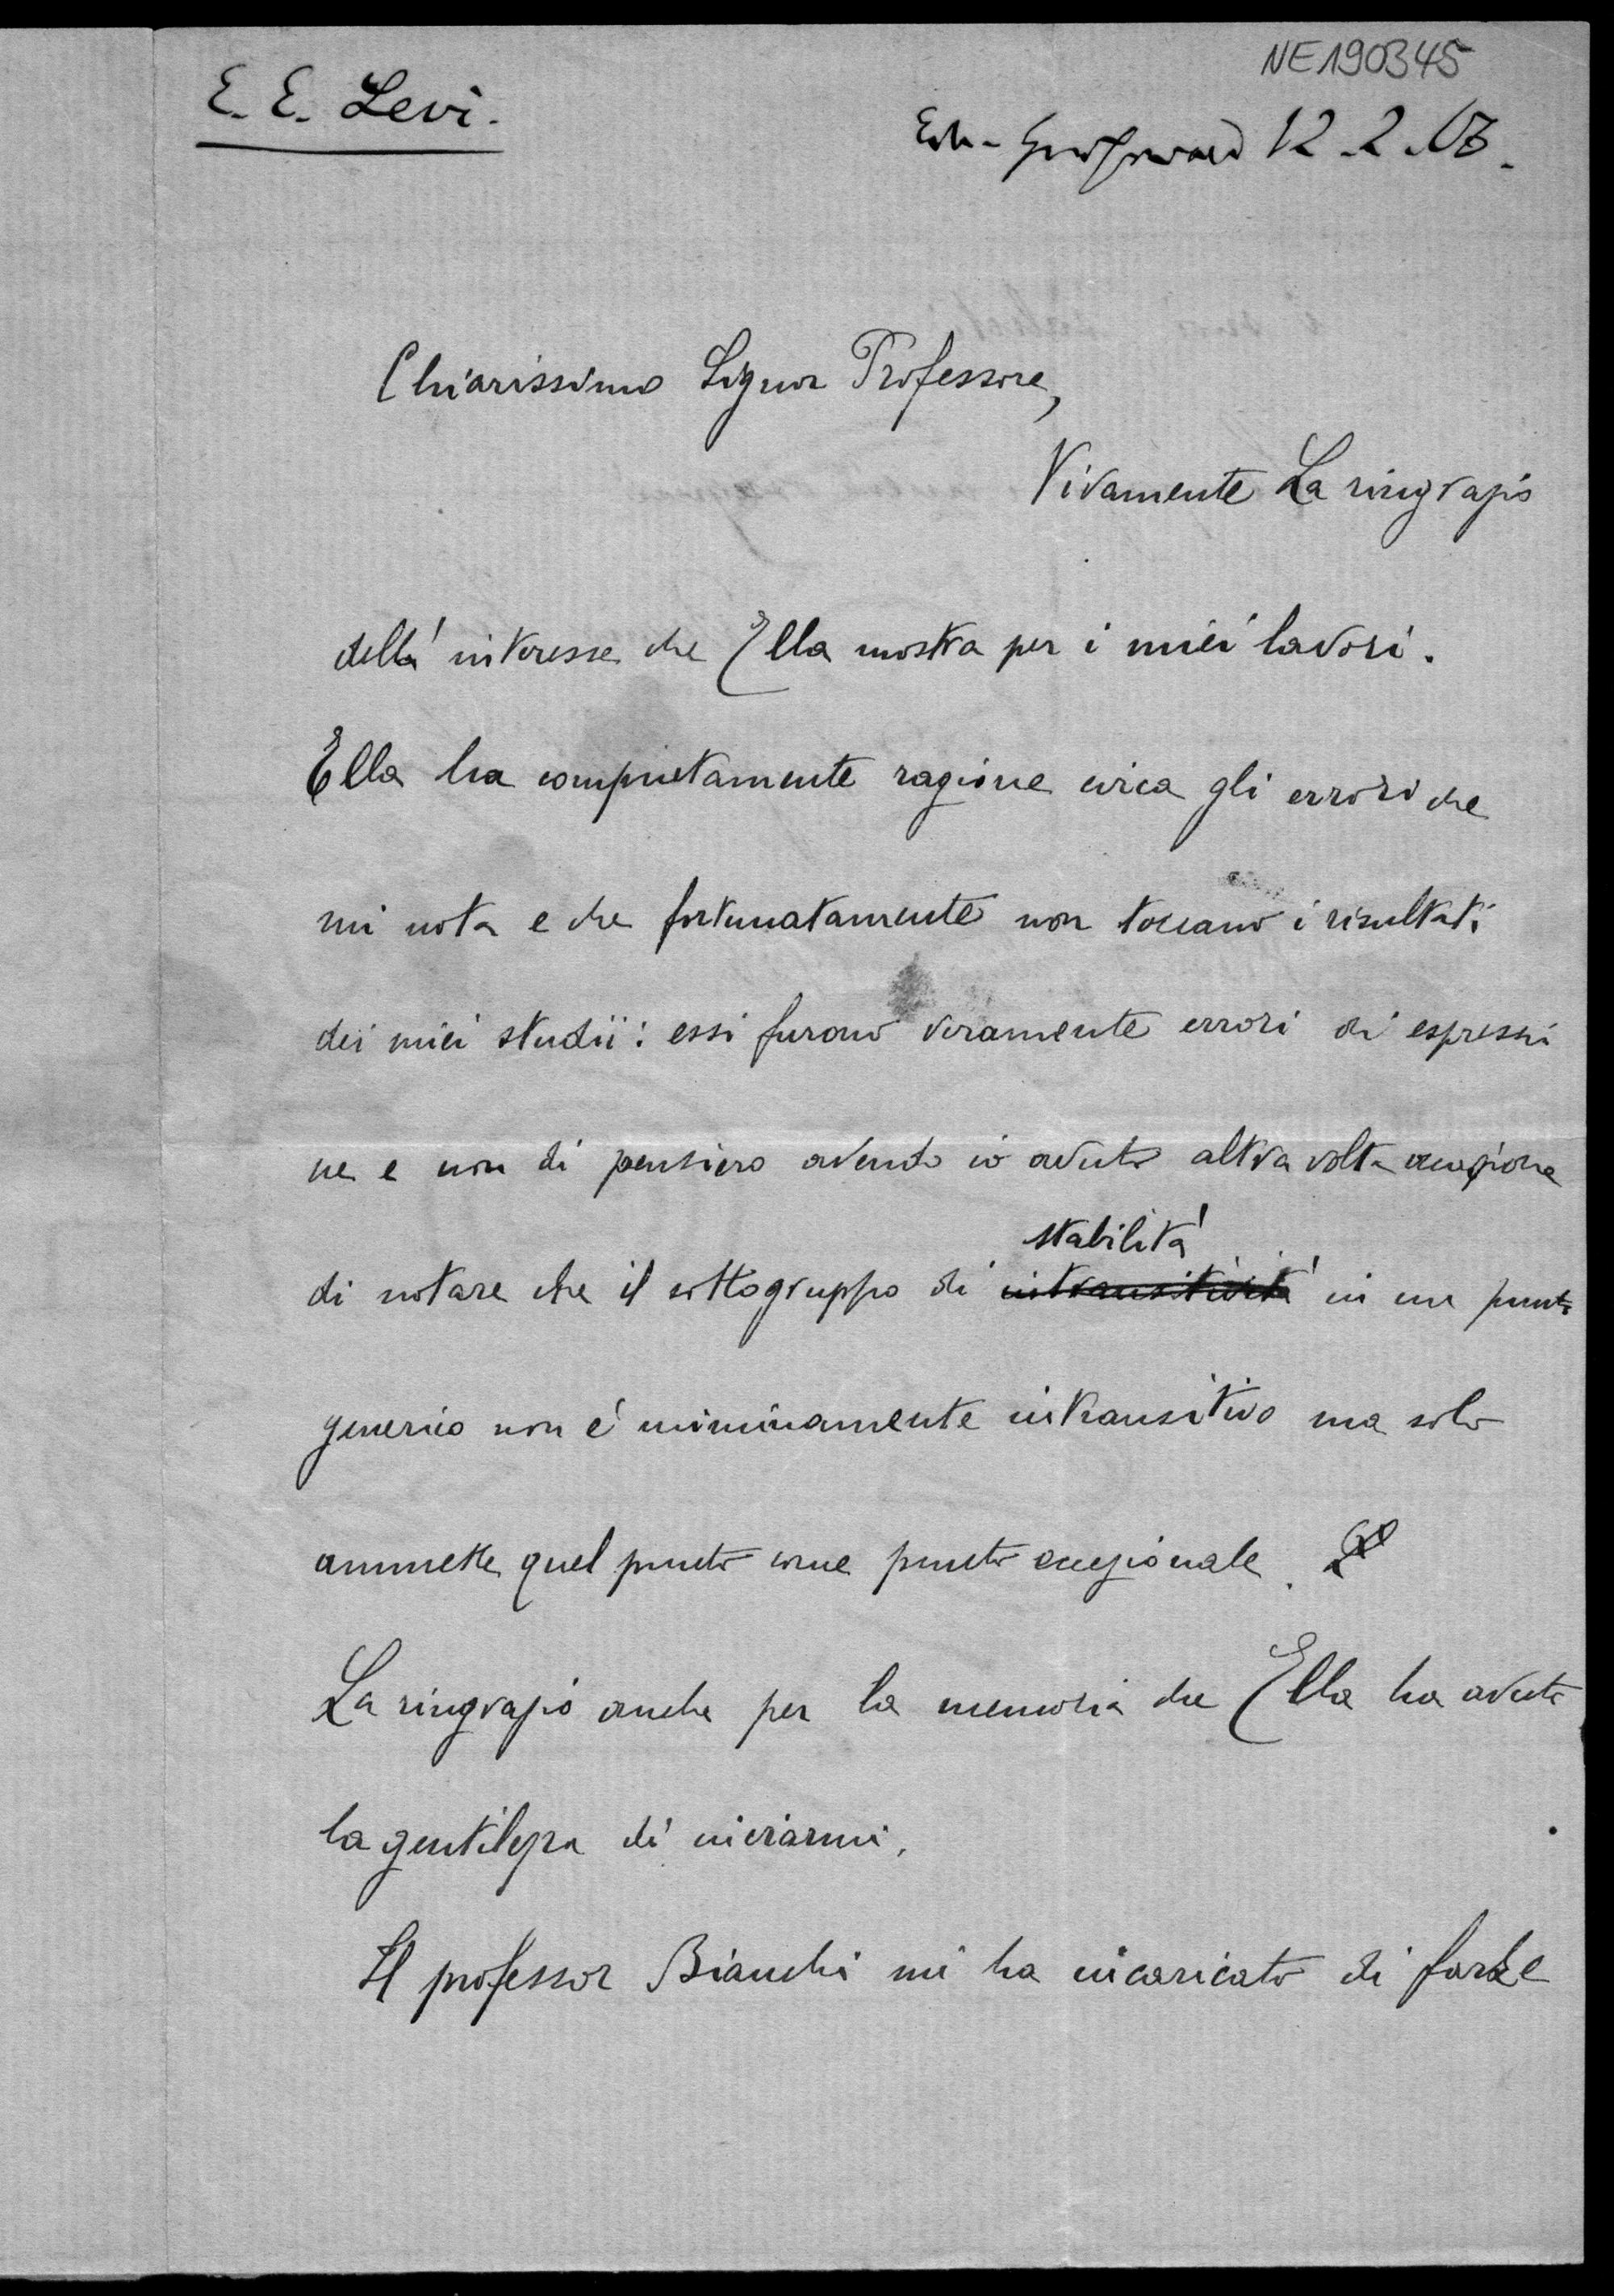 NE190345
E. E. Levi.
12.2.03.
Chiarissimo Signor Professore,
Vivamente La ringrazio
dell' interesse che Ella mostra per i miei lavori.
Ella ha completamente ragione circa gli errori che
mi nota e che fortunatamente non toccano i risultati
dei miei studii: essi furono veramente errori di espressio
ne e non di pensiero avendo io avuto altra volta occasione
stabilità
di notare che il sottogruppo di intransitività in un punto
generico non é minimamente intransitivo ma solo
ammette quel punto come punto eccezionale.
La ringrazio anche per la memoria che Ella ha avuto
la gentilezza di inviarmi.
Il professor Bianchi mi ha incaricato di farle